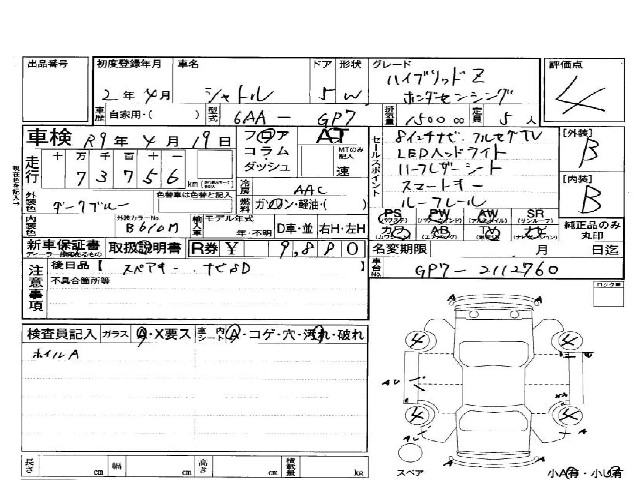 出品番号 初度登録年月 車名 ドア 形状 グレード 評価点
2年4月 シャトル 5 W ハイブリッドZ ホンダセンシング 4
車歴 自家用・( ) 型式 6AA - GP7 排気量 1500 cc 定員 5人
車検 R9年4月19日 フロア コラム ダッシュ AT MTのみ記入 速
セールスポイント 8インチナビ フルセグTV
LEDヘッドライト
ハーフレザーシート
スマートキー
ルーフレール
[外装] B
[内装] B
走行 十 万 千 百 十 一
73756 km
冷房 AAC
外装色 ダークブルー 色替車は色替と記入 燃料 ガソリン・軽油・( )
内装色 外装カラーNo. B610M 輸入車 モデル年式 年・不明 D車・並 右H・左H
PS PW AW SR
カワ AB TV ナビ
純正品のみ丸印
新車保証書 取扱説明書 R券 ¥ 9,880
名変期限 月 日迄
車台No. GP7-2112760
注意事項 後日品【スペアキー ナビSD】
不具合箇所等
ロック車
検査員記入 ガラス A・X要ス 車内シート A・コゲ・穴・汚れ・破れ
ホイルA
A A
4 4
AU
4 4
A A
長さ cm 幅 cm 高さ cm 積載量 kg
スペア 小A有・小U有